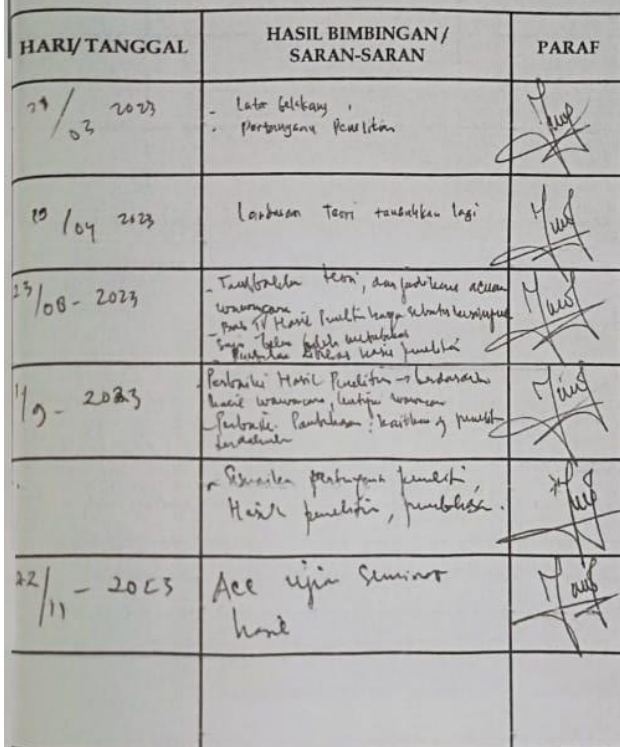 HARI/TANGGAL
HASIL BIMBINGAN/
SARAN-SARAN
PARAF
/03 2023
- Latar belakang
- Pertanyaan Penelitian
/04 2023
Landasan Teori tambahkan lagi
23/08 - 2023
- Tambahkan teori, dan jadikan acuan
wawancara
- Bab IV Hasil Penelitian hanya sebatas
hasil penelitian
1/9 - 2023
Perbaiki Hasil Penelitian → berdasarkan
hasil wawancara, kutipan wawancara
- Perbaiki Pembahasan: kaitkan dg penelitian
terdahulu
- Sesuaikan pertanyaan penelitian,
Hasil penelitian, pembahasan.
22/11 - 2023
Acc ujian Seminar
hasil